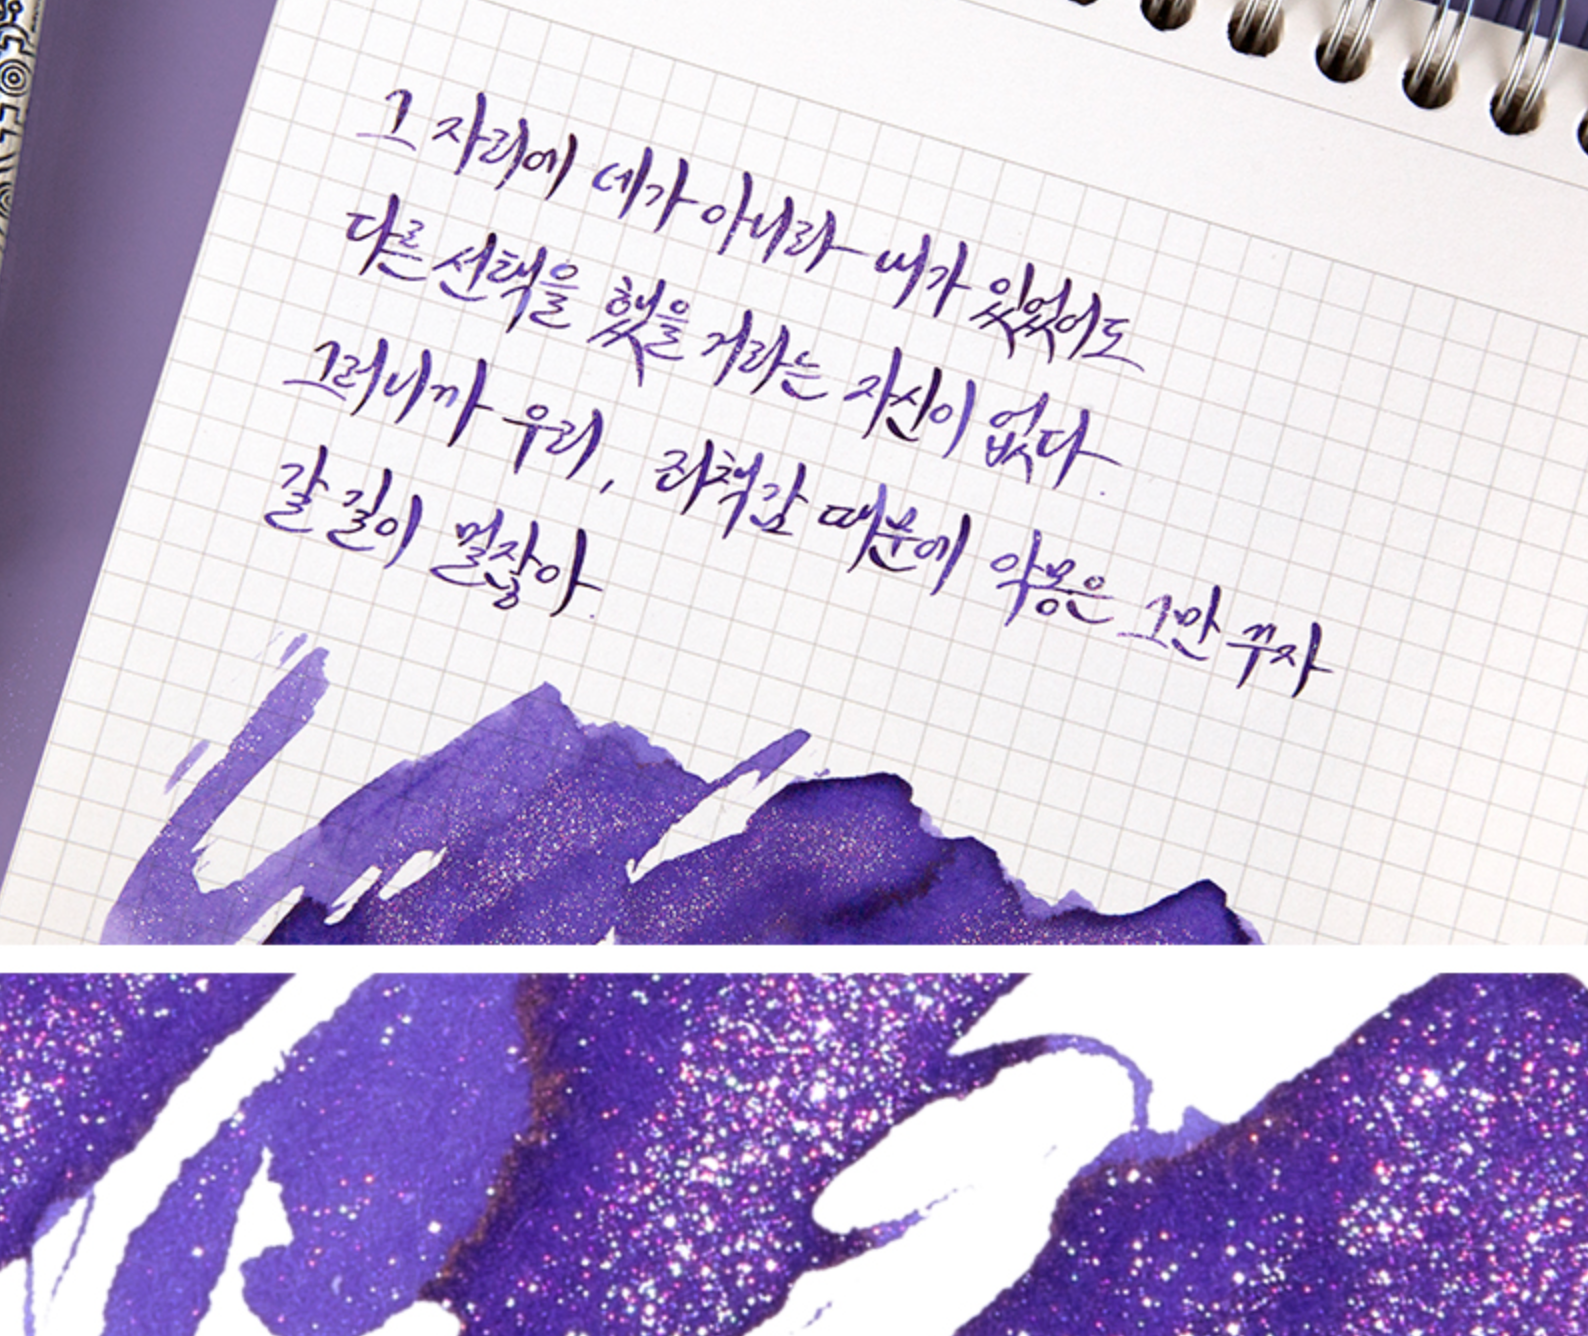 그 자리에 네가 아니라 내가 있었어도
다른 선택을 했을 거라는 자신이 없다.
그러니까 우리, 죄책감 때문에 악몽은 그만 꾸자
갈 길이 멀잖아.